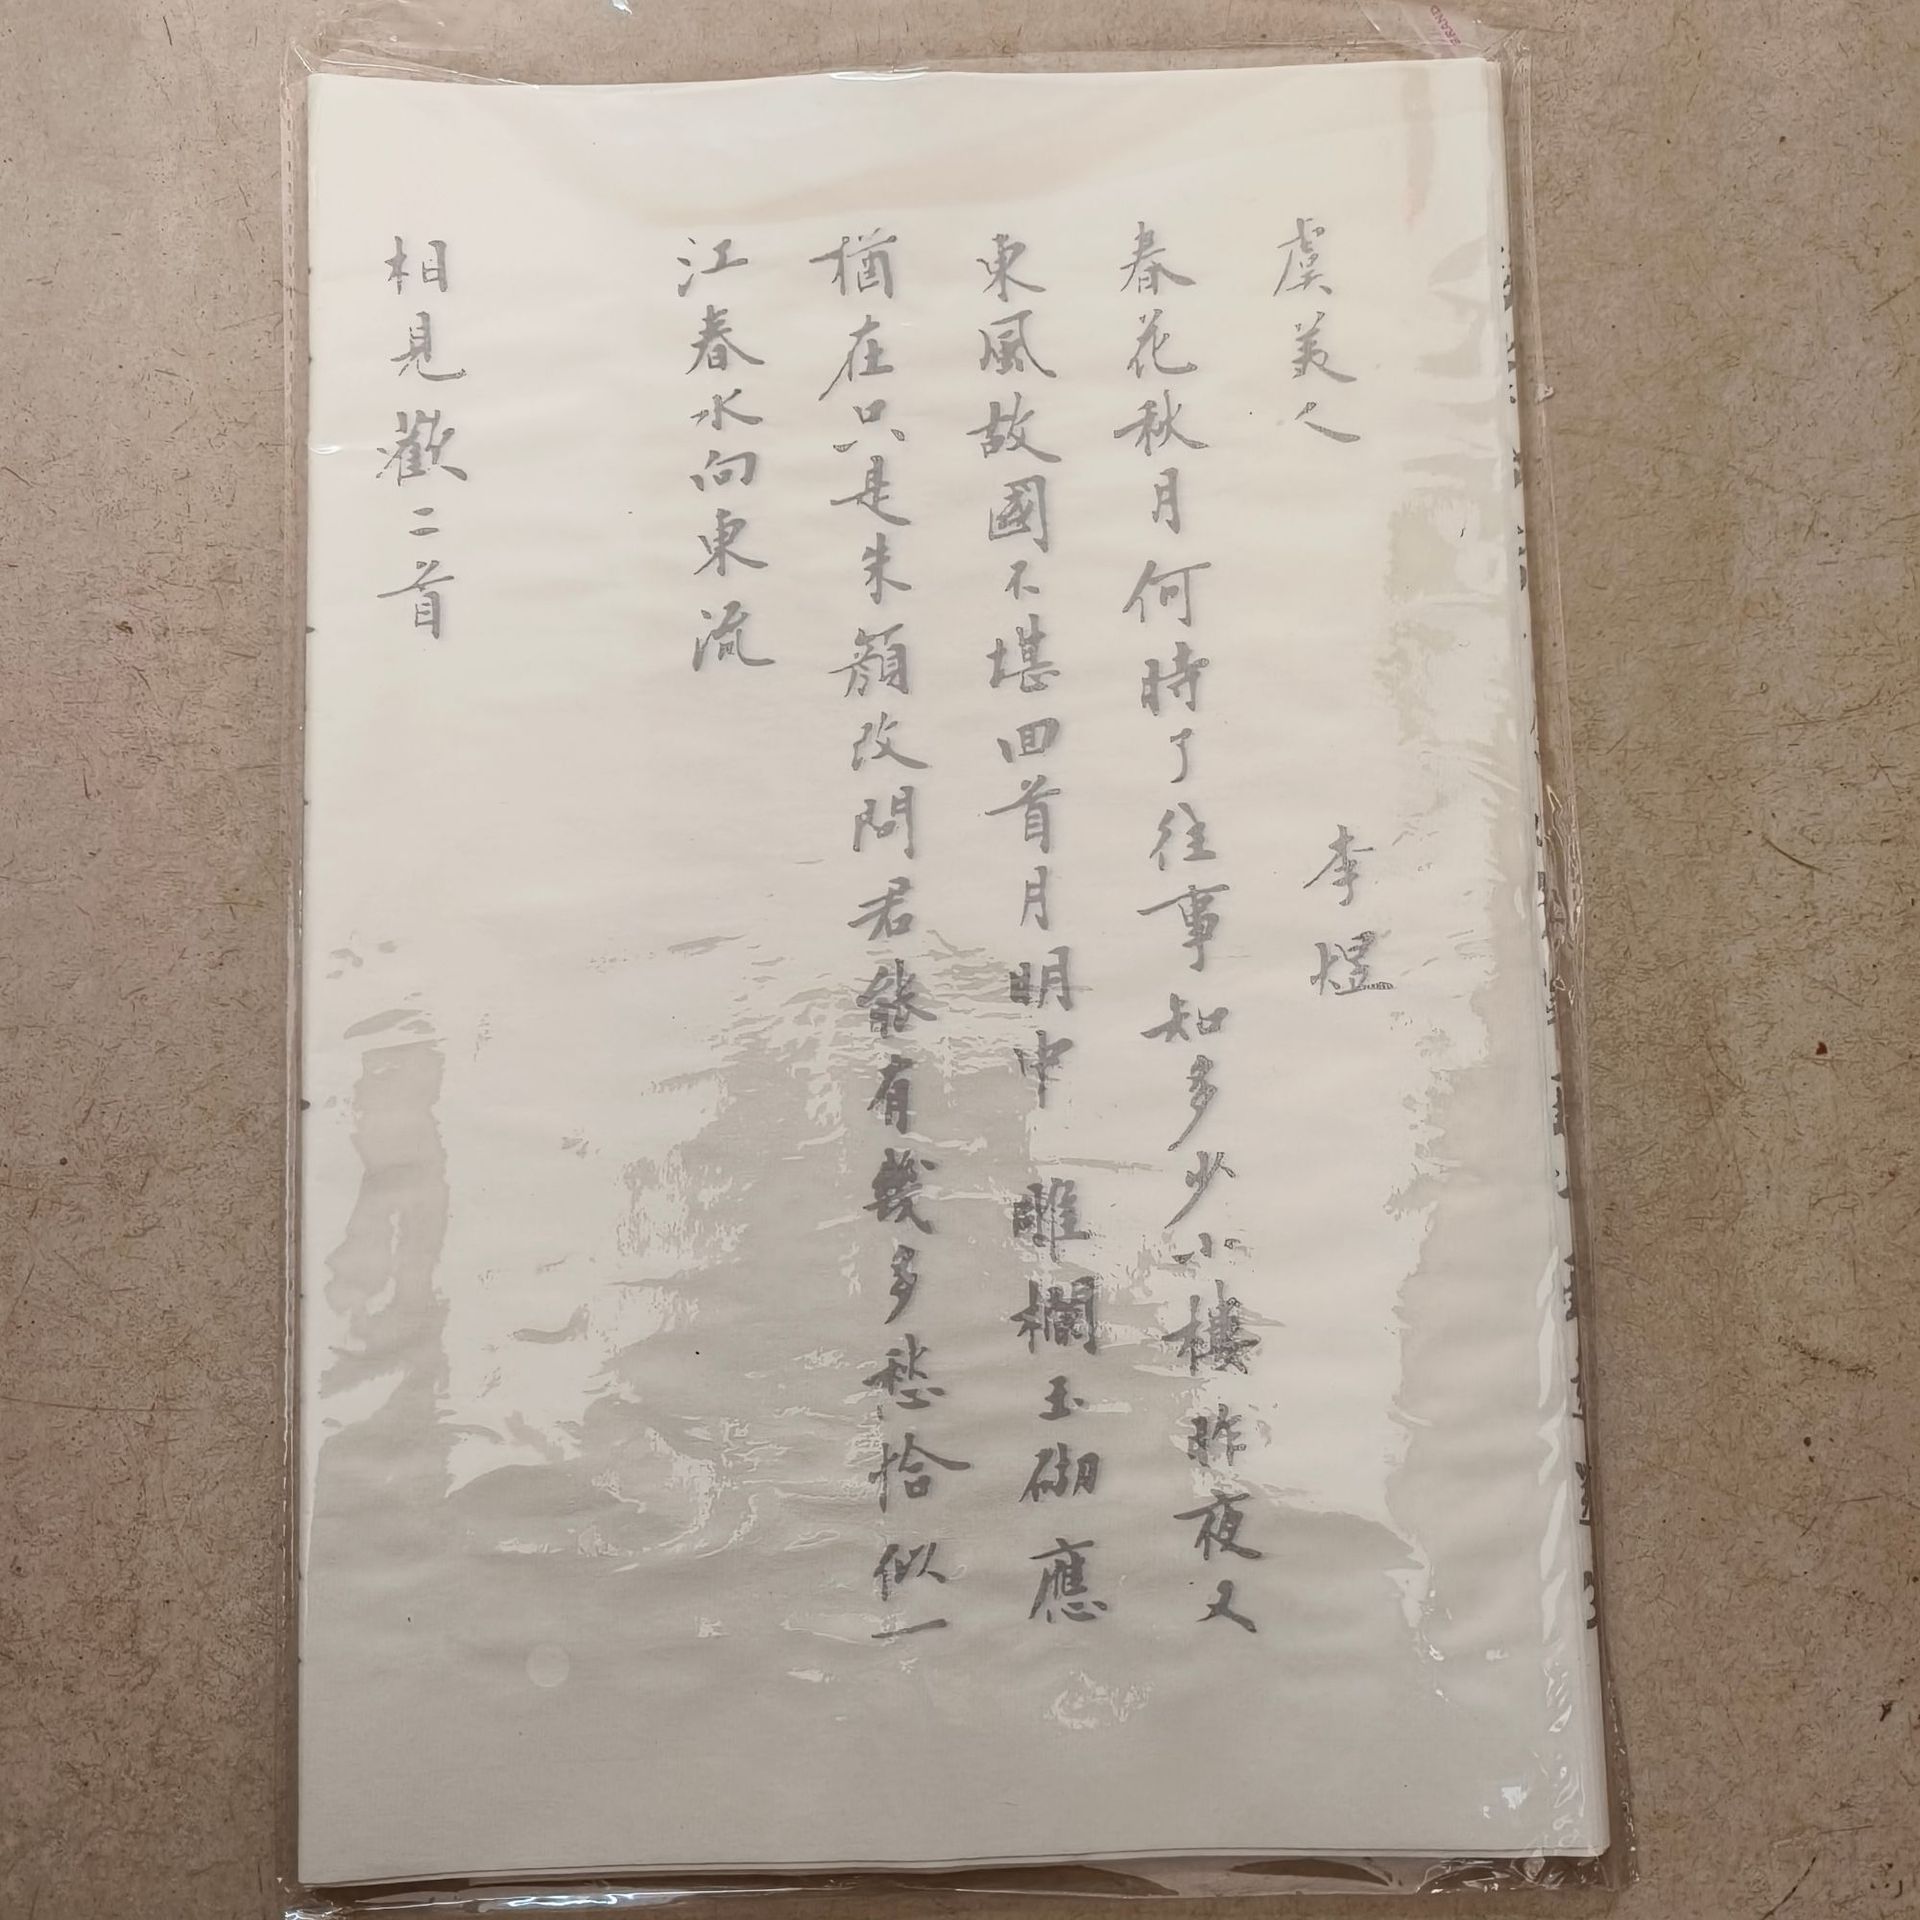 虞美人
李煜
春花秋月何時了往事知多少小樓昨夜又
東風故國不堪回首月明中雕欄玉砌應
猶在只是朱顏改問君能有幾多愁恰似一
江春水向東流
相見歡二首
BRAND